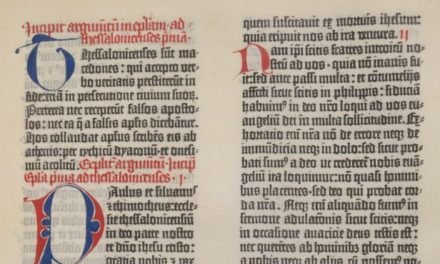 Incipit argumentū in eplam ad
thessalonicenses primā
Thessalonicenses sūt mace
dones: qui accepto verbo
veritatis perstiterūt in
fide: etiā in persecutione civiū suorū.
Preterea nec receperūt falsos aposto-
los: nec ea q̄ a falsis aplis dicebātur.
Hos collaudat apłus scribēs eis ab
athenis: per tychicū dyaconū et onesi-
mū acolitū. Explicit argumentū Incipit
Epła prima ad thessalonicenses · I ·
Paulus et silvanus
et thimotheus: ecclesi-
e thessalonicensium
in deo patre nostro
et dn̄o ihesu cristo:
gratia vobis et pax
quem suscitavit ex mortuis ihesum:
qui eripuit nos ab ira ventura. II
Nam ipi scitis fratres introitū no-
strū ad vos · quia nō inanis fu-
it: sed ante passi multa: et cōtumelijs
affecti sicut scitis in philippis: fiduciā
habuim⁹ in deo nr̄o loqui ad vos eu-
angeliū dei in multa sollicitudine. Ex-
hortatio eni nr̄a nō de errore neqz de
immūdicia neqz in dolo: sed sicut pro-
bati sum⁹ a deo ut crederet nobis euā-
geliū ita loquimur: nō quasi homi-
nibus placentes · sed deo qui probat cor-
da nr̄a. Neqz eni aliquādo fuim⁹ in
sermone adulatōnis sicut scitis: neqz
in occasione avaricie deus testis est:
nec querētes ab hominib⁹ gloriā ·